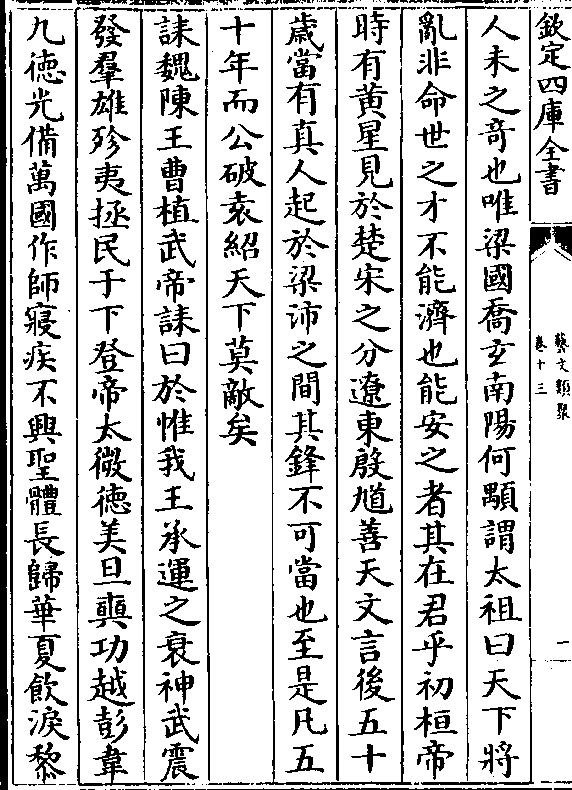 欽定四庫全書
藝文類聚
卷十三
一
人未之竒也唯梁國喬𤣥南陽何顒謂太祖曰天下將
亂非命世之才不能濟也能安之者其在君乎初桓帝
時有黄星見於楚宋之分遼東殷馗善天文言後五十
歳當有真人起於梁沛之間其鋒不可當也至是凡五
十年而公破袁紹天下莫敵矣
誄魏陳王曹植武帝誄曰於惟我王承運之衰神武震
發羣雄殄夷拯民于下登帝太微徳美旦奭功越彭韋
九徳光備萬國作師寢疾不興聖體長歸華夏飲淚黎